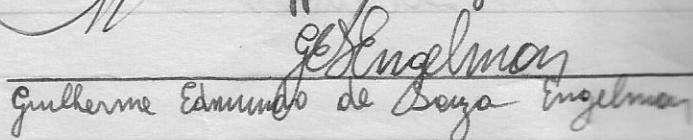 GESEngelman
Guilherme Edmundo de Souza Engelman